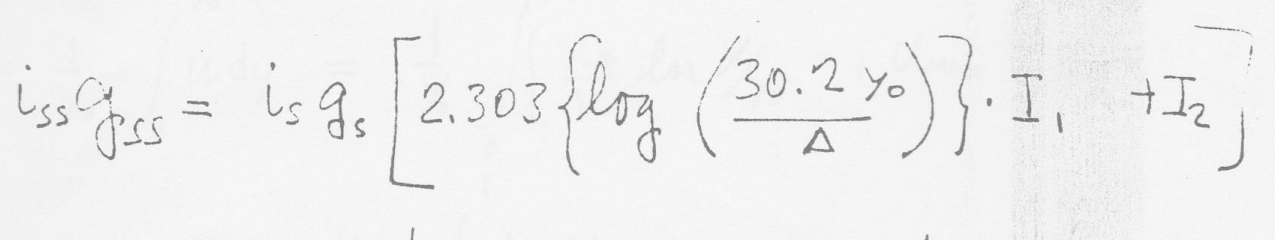 i_ss g_ss = i_s g_s [2.303 {log (30.2 y_0 / Δ)} · I_1 + I_2]